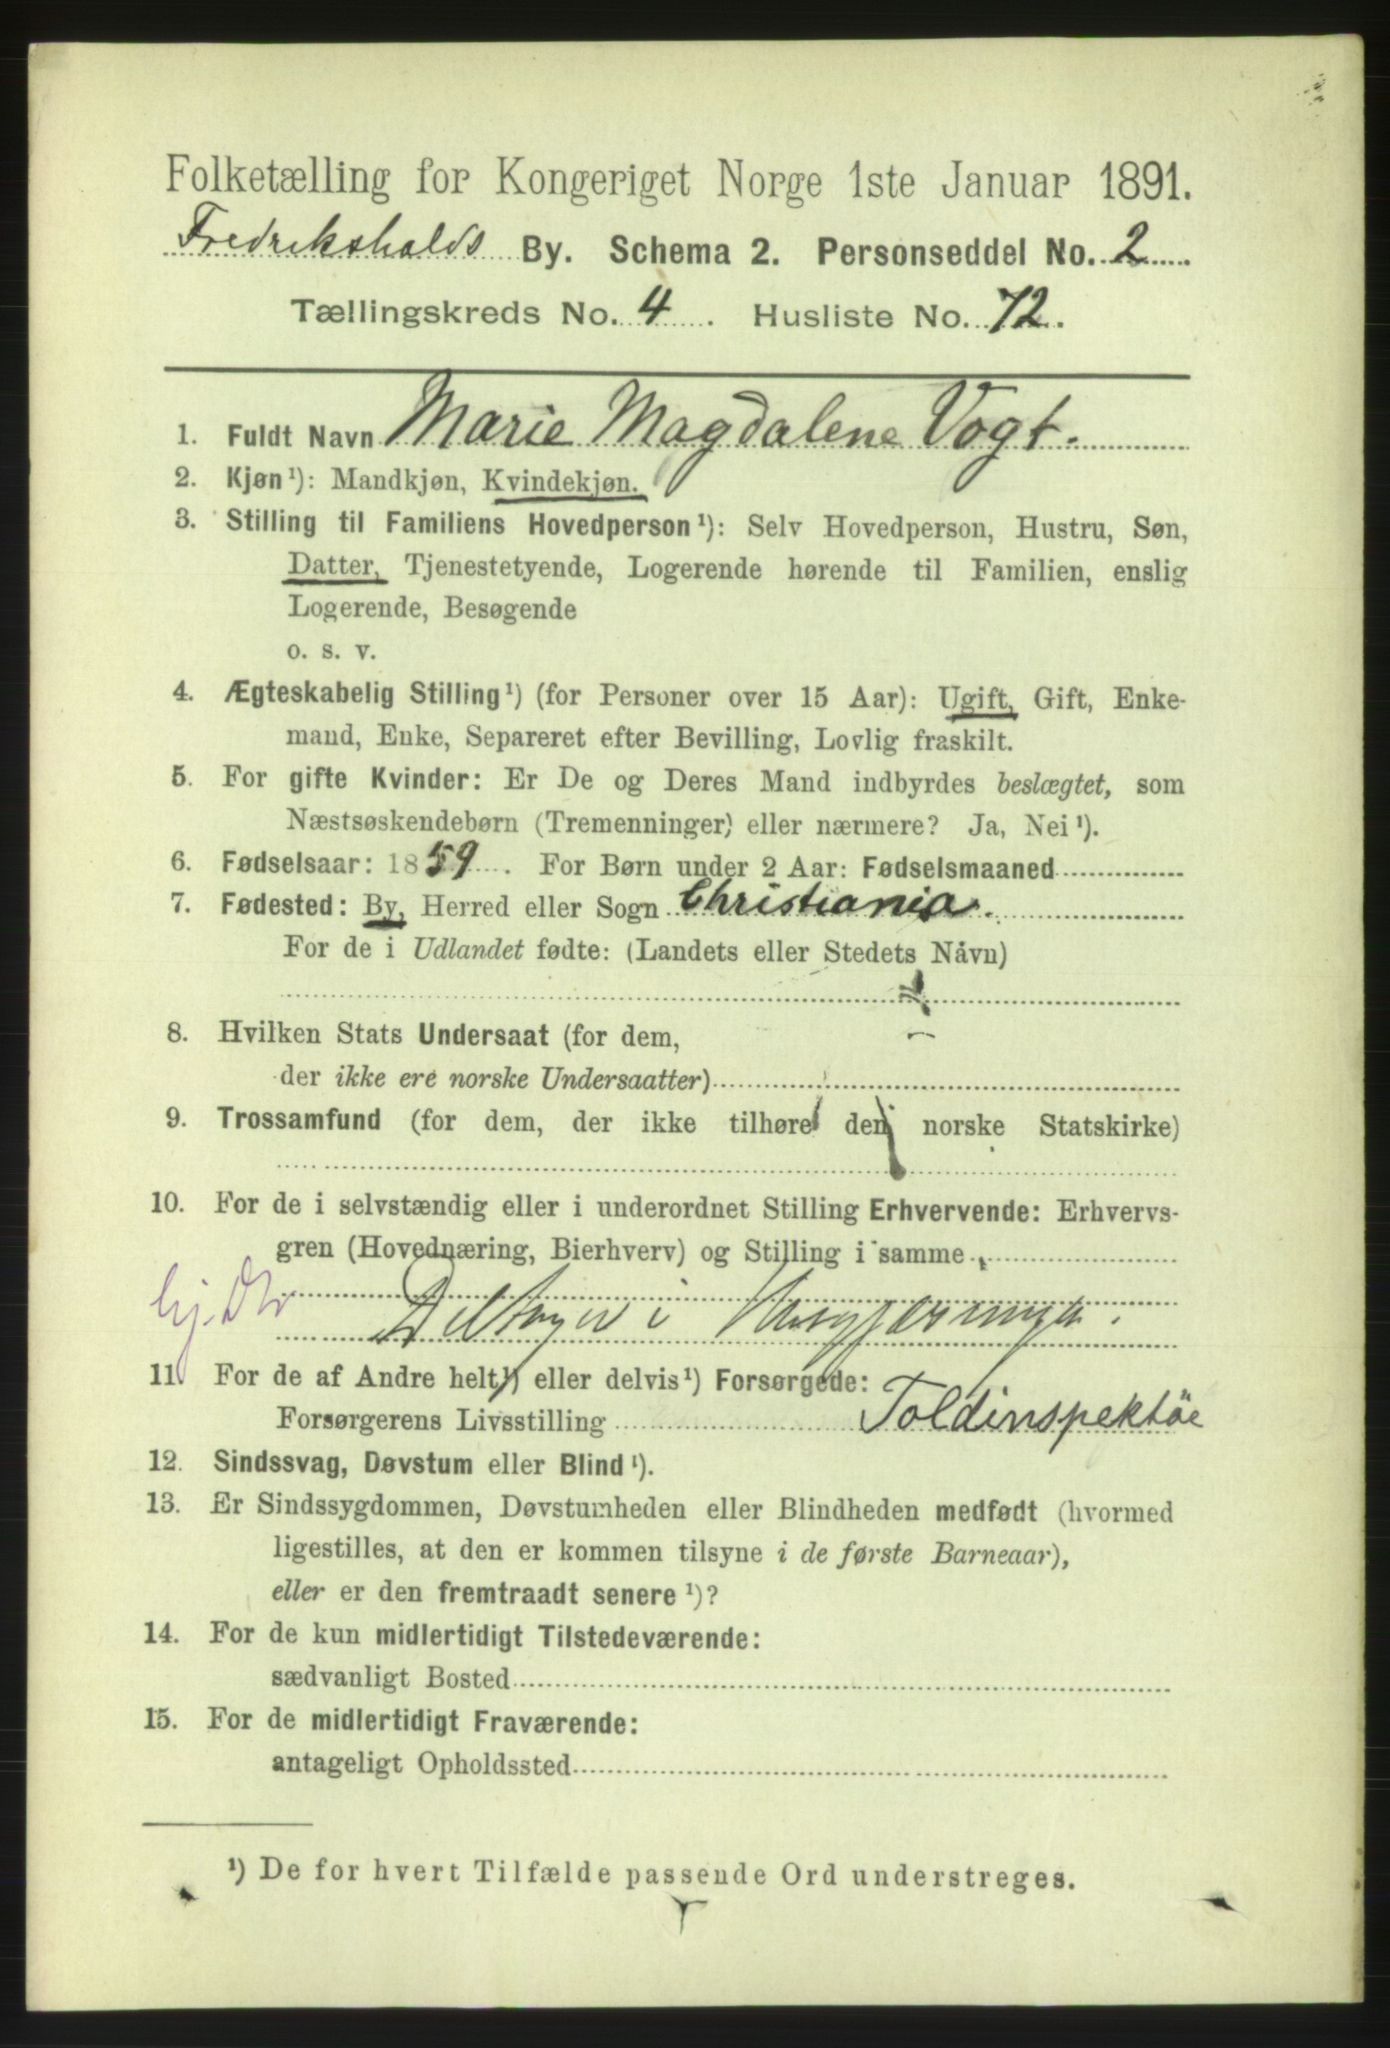 Folketælling for Kongeriget Norge 1ste Januar 1891.
Fredrikshalds By. Schema 2. Personseddel No. 2
Tællingskreds No. 4. Husliste No. 72.
1. Fuldt Navn Marie Magdalene Vogt.
2. Kjøn¹): Mandkjøn, Kvindekjøn.
3. Stilling til Familiens Hovedperson¹): Selv Hovedperson, Hustru, Søn,
Datter, Tjenestetyende, Logerende hørende til Familien, enslig
Logerende, Besøgende
o. s. v.
4. Ægteskabelig Stilling¹) (for Personer over 15 Aar): Ugift, Gift, Enke-
mand, Enke, Separeret efter Bevilling, Lovlig fraskilt.
5. For gifte Kvinder: Er De og Deres Mand indbyrdes beslægtet, som
Næstsøskendebørn (Tremenninger) eller nærmere? Ja, Nei¹).
6. Fødselsaar: 1859. For Børn under 2 Aar: Fødselsmaaned
7. Fødested: By, Herred eller Sogn Christiania.
For de i Udlandet fødte: (Landets eller Stedets Navn)
8. Hvilken Stats Undersaat (for dem,
der ikke ere norske Undersaatter)
9. Trossamfund (for dem, der ikke tilhøre den norske Statskirke)
10. For de i selvstændig eller i underordnet Stilling Erhvervende: Erhvervs-
gren (Hovednæring, Bierhverv) og Stilling i samme
hj. Dtr
Deltager i Husgjerninger.
11. For de af Andre helt¹) eller delvis¹) Forsørgede:
Forsørgerens Livsstilling Toldinspektør
12. Sindssvag, Døvstum eller Blind¹).
13. Er Sindssygdommen, Døvstumheden eller Blindheden medfødt (hvormed
ligestilles, at den er kommen tilsyne i de første Barneaar),
eller er den fremtraadt senere¹)?
14. For de kun midlertidigt Tilstedeværende:
sædvanligt Bosted
15. For de midlertidigt Fraværende:
antageligt Opholdssted
¹) De for hvert Tilfælde passende Ord understreges.